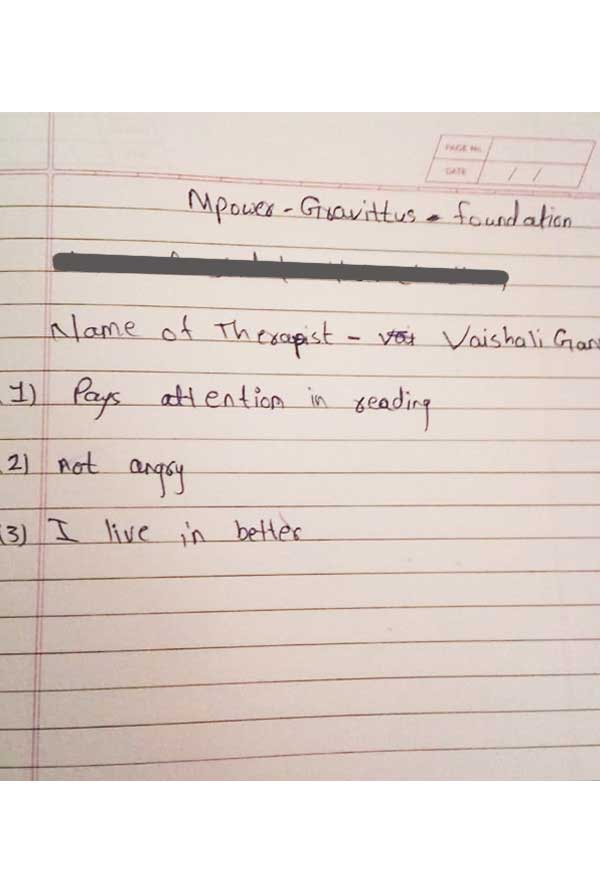 PAGE No.
DATE / /
Mpower - Gravittus - foundation
Name of Therapist - Vaishali
1) Pays attention in reading
2) not angry
3) I live in better